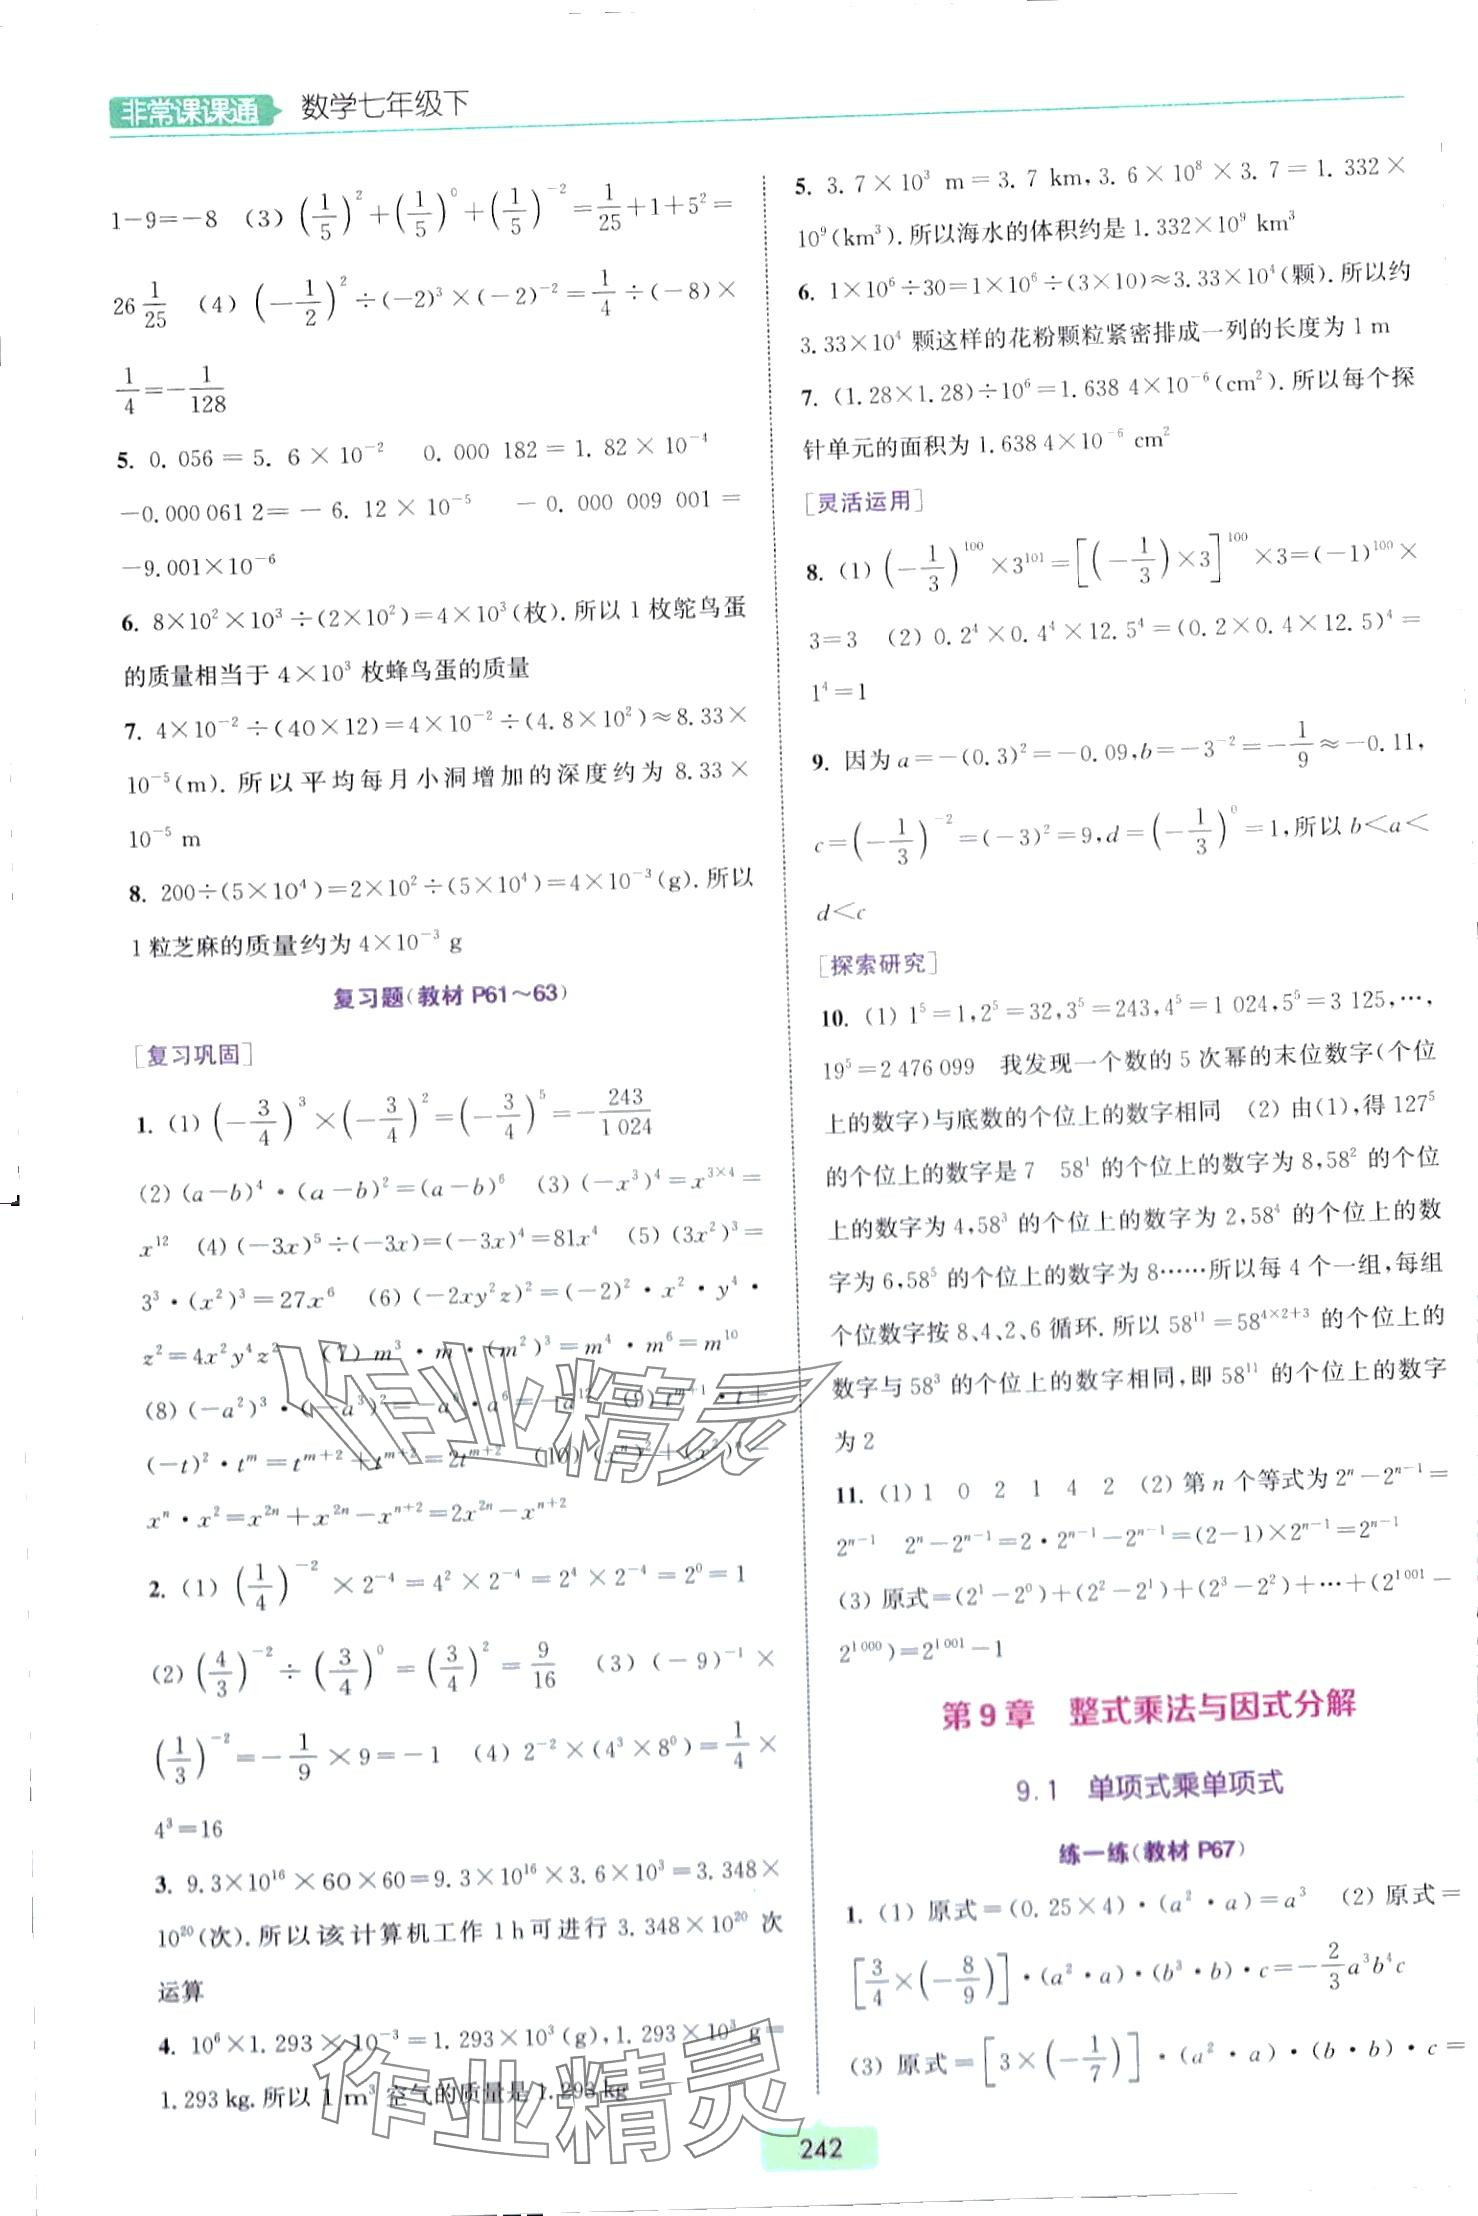 非常课课通 数学七年级下
1－9＝－8 (3) (1/5)²＋(1/5)⁰＋(1/5)⁻²＝1/25＋1＋5²＝
26 1/25 (4) (－1/2)²÷(－2)³×(－2)⁻²＝1/4÷(－8)×
1/4＝－1/128
5. 0.056＝5.6×10⁻² 0.000 182＝1.82×10⁻⁴
－0.000 061 2＝－6.12×10⁻⁵ －0.000 009 001＝
－9.001×10⁻⁶
6. 8×10²×10³÷(2×10²)＝4×10³(枚).所以1枚鸵鸟蛋
的质量相当于4×10³枚蜂鸟蛋的质量
7. 4×10⁻²÷(40×12)＝4×10⁻²÷(4.8×10²)≈8.33×
10⁻⁵(m).所以平均每月小洞增加的深度约为8.33×
10⁻⁵ m
8. 200÷(5×10⁴)＝2×10²÷(5×10⁴)＝4×10⁻³(g).所以
1粒芝麻的质量约为4×10⁻³ g
复习题(教材P61～63)
[复习巩固]
1. (1) (－3/4)³×(－3/4)²＝(－3/4)⁵＝－243/1 024
(2) (a－b)⁴·(a－b)²＝(a－b)⁶ (3) (－x³)⁴＝x³ˣ⁴＝
x¹² (4) (－3x)⁵÷(－3x)＝(－3x)⁴＝81x⁴ (5) (3x²)³＝
3³·(x²)³＝27x⁶ (6) (－2xy²z)²＝(－2)²·x²·y⁴·
z²＝4x²y⁴z² (7) m³·m·(m²)³＝m⁴·m⁶＝m¹⁰
(8) (－a²)³·(－a³)²＝－a⁶·a⁶＝－a¹² (9) tᵐ⁺¹·t＋
(－t)²·tᵐ＝tᵐ⁺²＋tᵐ⁺²＝2tᵐ⁺² (10) (xⁿ)²＋(x²)ⁿ－
xⁿ·x²＝x²ⁿ＋x²ⁿ－xⁿ⁺²＝2x²ⁿ－xⁿ⁺²
2. (1) (1/4)⁻²×2⁻⁴＝4²×2⁻⁴＝2⁴×2⁻⁴＝2⁰＝1
(2) (4/3)⁻²÷(3/4)⁰＝(3/4)²＝9/16 (3) (－9)⁻¹×
(1/3)⁻²＝－1/9×9＝－1 (4) 2⁻²×(4³×8⁰)＝1/4×
4³＝16
3. 9.3×10¹⁶×60×60＝9.3×10¹⁶×3.6×10³＝3.348×
10²⁰(次).所以该计算机工作1 h可进行3.348×10²⁰次
运算
4. 10⁶×1.293×10⁻³＝1.293×10³(g),1.293×10³ g＝
1.293 kg.所以1 m³空气的质量是1.293 kg
5. 3.7×10³ m＝3.7 km,3.6×10⁸×3.7＝1.332×
10⁹(km³).所以海水的体积约是1.332×10⁹ km³
6. 1×10⁶÷30＝1×10⁶÷(3×10)≈3.33×10⁴(颗).所以约
3.33×10⁴颗这样的花粉颗粒紧密排成一列的长度为1 m
7. (1.28×1.28)÷10⁶＝1.638 4×10⁻⁶(cm²).所以每个探
针单元的面积为1.638 4×10⁻⁶ cm²
[灵活运用]
8. (1) (－1/3)¹⁰⁰×3¹⁰¹＝[(－1/3)×3]¹⁰⁰×3＝(－1)¹⁰⁰×
3＝3 (2) 0.2⁴×0.4⁴×12.5⁴＝(0.2×0.4×12.5)⁴＝
1⁴＝1
9. 因为a＝－(0.3)²＝－0.09,b＝－3⁻²＝－1/9≈－0.11,
c＝(－1/3)⁻²＝(－3)²＝9,d＝(－1/3)⁰＝1,所以b＜a＜
d＜c
[探索研究]
10. (1) 1⁵＝1,2⁵＝32,3⁵＝243,4⁵＝1 024,5⁵＝3 125,…,
19⁵＝2 476 099 我发现一个数的5次幂的末位数字(个位
上的数字)与底数的个位上的数字相同 (2) 由(1),得127⁵
的个位上的数字是7 58¹的个位上的数字为8,58²的个位
上的数字为4,58³的个位上的数字为2,58⁴的个位上的数
字为6,58⁵的个位上的数字为8……所以每4个一组,每组
个位数字按8、4、2、6循环.所以58¹¹＝58⁴ˣ²⁺³的个位上的
数字与58³的个位上的数字相同,即58¹¹的个位上的数字
为2
11. (1) 1 0 2 1 4 2 (2) 第n个等式为2ⁿ－2ⁿ⁻¹＝
2ⁿ⁻¹ 2ⁿ－2ⁿ⁻¹＝2·2ⁿ⁻¹－2ⁿ⁻¹＝(2－1)×2ⁿ⁻¹＝2ⁿ⁻¹
(3) 原式＝(2¹－2⁰)＋(2²－2¹)＋(2³－2²)＋…＋(2¹⁰⁰¹－
2¹⁰⁰⁰)＝2¹⁰⁰¹－1
第9章 整式乘法与因式分解
9.1 单项式乘单项式
练一练(教材P67)
1. (1) 原式＝(0.25×4)·(a²·a)＝a³ (2) 原式＝
[3/4×(－8/9)]·(a²·a)·(b³·b)·c＝－2/3a³b⁴c
(3) 原式＝[3×(－1/7)]·(a²·a)·(b·b)·c＝
242
作业精灵
作业精灵